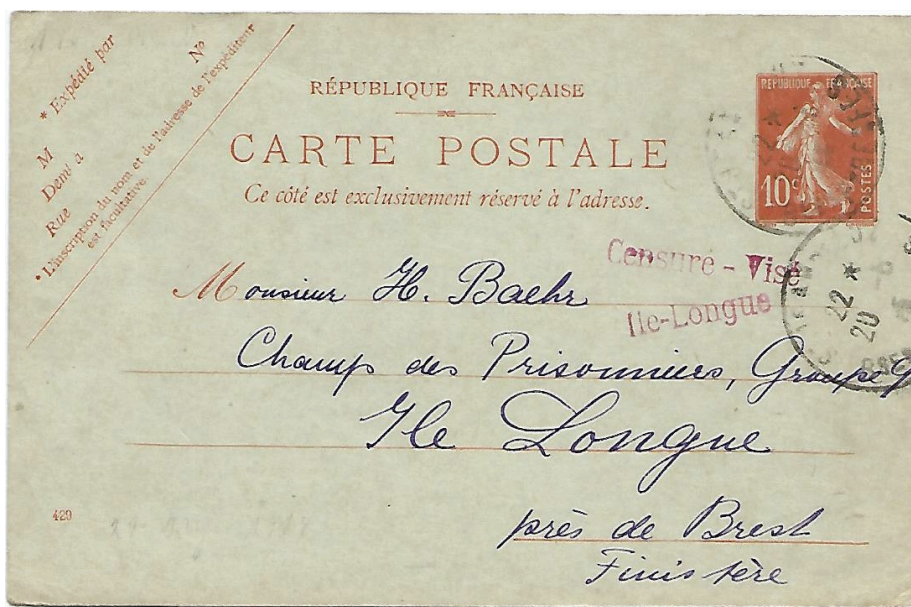 * Expédié par
M N°
Demt à
Rue
* L'inscription du nom et de l'adresse de l'expéditeur
est facultative.
RÉPUBLIQUE FRANÇAISE
CARTE POSTALE
Ce côté est exclusivement réservé à l'adresse.
RÉPUBLIQUE FRANÇAISE
10c
POSTES
22 *
22 *
20
Censuré - Visé
Ile-Longue
Monsieur H. Baehr
Champ des Prisonniers, Groupe 9
Ile Longue
près de Brest
Finistère
429